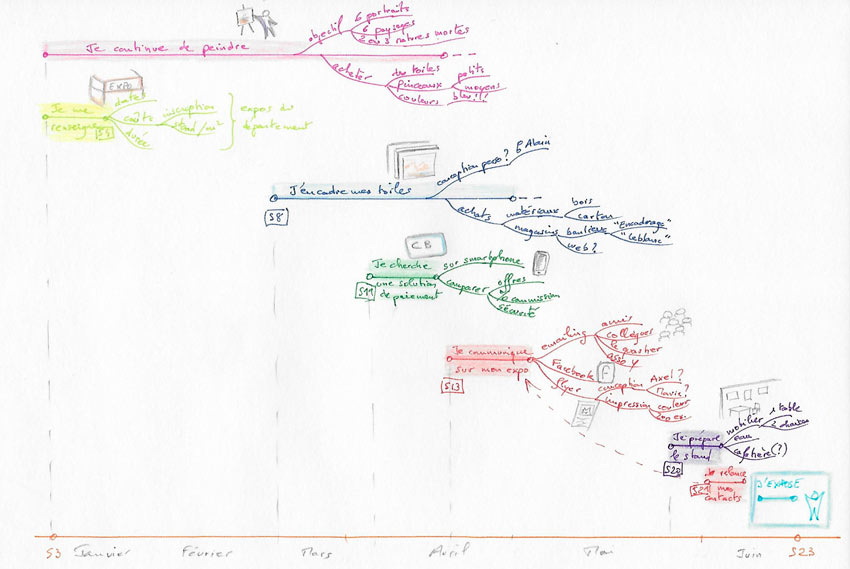 Je continue de peindre
objectif
6 portraits
6 paysages
2 ou 3 natures mortes
acheter
des toiles
pinceaux
petits
moyens
couleurs
bleu !!!
EXPO
Je me
renseigne
S4
dates
coûts
inscription
stand/m²
durée
expos du
département
J'encadre mes toiles
S8
conception perso ?
Alain
achats
matériaux
bois
carton
magasins
banlieue
"Encadrage"
"Leblanc"
web ?
CB
Je cherche
une solution
de paiement
S11
sur smartphone
comparer
offres
% commission
sécurité
Je communique
sur mon expo
S13
emailing
amis
collègues
le quartier
asso Y
Facebook
F
flyer
conception
Axel ?
Marie ?
impression
couleur
200 ex.
M
Je prépare
le stand
S20
mobilier
1 table
2 chaises
eau
cafetière (?)
Je relance
mes
contacts
S21
J'EXPOSE
S3
Janvier
Février
Mars
Avril
Mai
Juin
S23